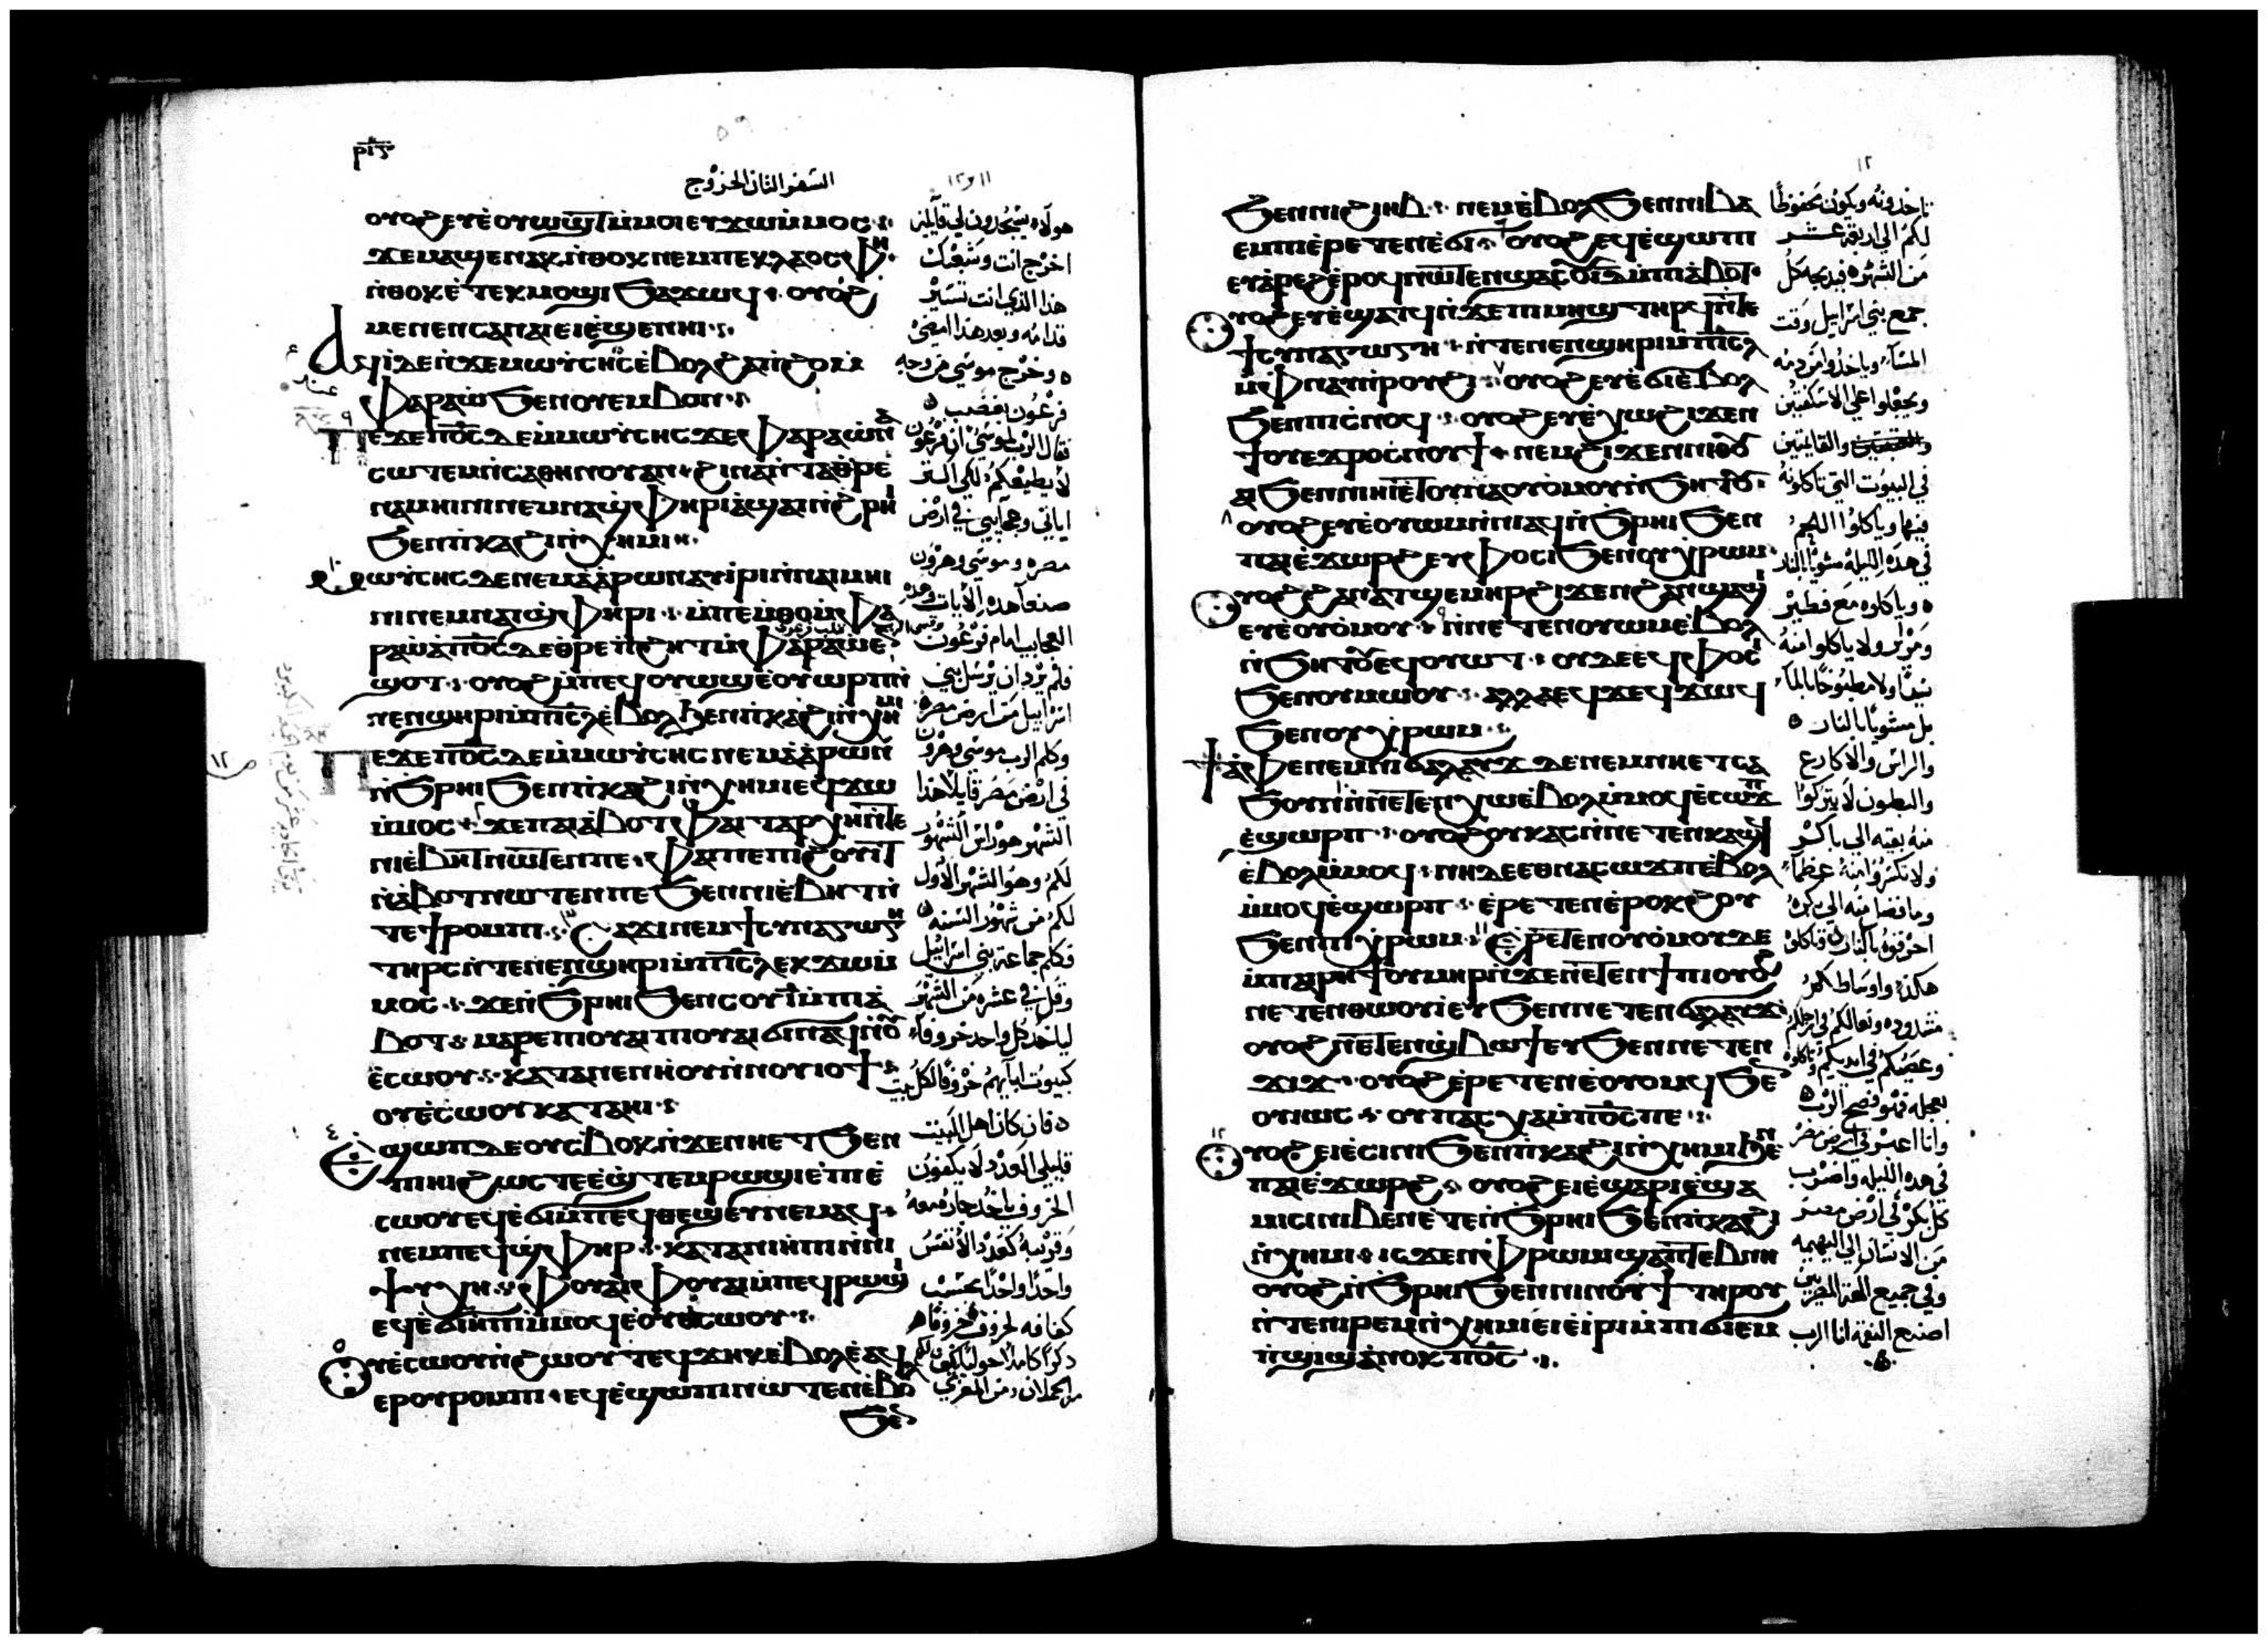 ⲣⲓ̅ⲋ̅
السفر الثانى الخروج
١١ و ١٢
ⲟⲩⲟϩ ⲉⲩⲉ̀ⲟⲩⲱϣⲧ ⲙ̀ⲙⲟⲓ ⲉⲩϫⲱ ⲙ̀ⲙⲟⲥ
ϫⲉ ⲙⲁϣⲉⲛⲁⲕ ⲛ̀ⲑⲟⲕ ⲛⲉⲙ ⲡⲉⲕⲗⲁⲟⲥ ⲫⲏ
ⲛ̀ⲑⲟⲕ ⲉ̀ⲧⲉⲕⲙⲟϣⲓ ϧⲁϫⲱϥ ⲟⲩⲟϩ
ⲙⲉⲛⲉⲛⲥⲁ ⲛⲁⲓ ⲉⲓⲉ̀ϣⲉⲛⲏⲓ
ⲁϥⲓ̀ ⲇⲉ ⲛ̀ϫⲉ ⲙⲱⲩ̀ⲥⲏⲥ ⲉ̀ⲃⲟⲗ ϩⲁ ⲡ̀ϩⲟ ⲙ̀
ⲫⲁⲣⲁⲱ̀ ϧⲉⲛ ⲟⲩⲉⲙⲃⲟⲛ
ⲡⲉϫⲉ ⲡⲟ̅ⲥ̅ ⲇⲉ ⲙ̀ⲙⲱⲩ̀ⲥⲏⲥ ϫⲉ ⲫⲁⲣⲁⲱ̀ ⲛⲁ
ⲥⲱⲧⲉⲙ ⲛ̀ⲥⲁ ⲑⲏⲛⲟⲩ ⲁⲛ ϩⲓⲛⲁ ⲛ̀ⲧⲁⲑⲣⲉ
ⲛⲁⲙⲏⲓⲛⲓ ⲛⲉⲙ ⲛⲁϣⲫⲏⲣⲓ ⲁ̀ϣⲁⲓ ⲛ̀ϩ̀ⲣⲏⲓ
ϧⲉⲛ ⲡ̀ⲕⲁϩⲓ ⲛ̀ⲭⲏⲙⲓ
ⲙⲱⲩ̀ⲥⲏⲥ ⲇⲉ ⲛⲉⲙ ⲁ̀ⲁ̀ⲣⲱⲛ ⲁⲩⲓ̀ⲣⲓ ⲛ̀ⲛⲁⲓⲙⲏⲓ
ⲛⲓ ⲛⲉⲙ ⲛⲁⲓϣⲫⲏⲣⲓ ⲙ̀ⲡⲉⲙ̀ⲑⲟ ⲙ̀ⲫⲁ
ⲣⲁⲱ̀ ⲁ̀ ⲡⲟ̅ⲥ̅ ⲇⲉ ⲑ̀ⲣⲉ ⲡ̀ϩⲏⲧ ⲙ̀ⲫⲁⲣⲁⲱ̀ ⲛ̀
ϣⲟⲧ ⲟⲩⲟϩ ⲙ̀ⲡⲉϥⲟⲩⲱϣ ⲉ̀ⲟⲩⲱⲣⲡ ⲛ̀
ⲛⲉⲛϣⲏⲣⲓ ⲙ̀ⲡⲓ̅ⲥ̅ⲗ̅ ⲉ̀ⲃⲟⲗ ϧⲉⲛ ⲡ̀ⲕⲁϩⲓ ⲛ̀ⲭⲏⲙⲓ
ⲡⲉϫⲉ ⲡⲟ̅ⲥ̅ ⲇⲉ ⲙ̀ⲙⲱⲩ̀ⲥⲏⲥ ⲛⲉⲙ ⲁ̀ⲁ̀ⲣⲱⲛ
ⲛ̀ϧ̀ⲣⲏⲓ ϧⲉⲛ ⲡ̀ⲕⲁϩⲓ ⲛ̀ⲭⲏⲙⲓ ⲉϥϫⲱ
ⲙ̀ⲙⲟⲥ ϫⲉ ⲡⲁⲓⲁ̀ⲃⲟⲧ ⲫⲁⲓ ⲧⲁⲣⲭⲏ ⲛ̀ⲧⲉ
ⲛⲓⲉ̀ⲃⲏⲧ ⲛⲱⲧⲉⲛ ⲡⲉ ⲫⲁⲓ ⲡⲉ ⲡⲓϩⲟⲩⲓⲧ
ⲛ̀ⲁ̀ⲃⲟⲧ ⲛⲱⲧⲉⲛ ⲡⲉ ϧⲉⲛ ⲛⲓⲉ̀ⲃⲏⲧ ⲛ̀
ⲧⲉ ϯⲣⲟⲙⲡⲓ ⲥⲁϫⲓ ⲛⲉⲙ ϯⲥⲩⲛⲁⲅⲱⲅⲏ
ⲧⲏⲣⲥ ⲛ̀ⲧⲉ ⲛⲉⲛϣⲏⲣⲓ ⲙ̀ⲡⲓ̅ⲥ̅ⲗ̅ ⲉⲕϫⲱ ⲙ̀
ⲙⲟⲥ ϫⲉ ⲛ̀ϧ̀ⲣⲏⲓ ϧⲉⲛ ⲥⲟⲩⲓ̅ ⲙ̀ⲡⲓⲁ̀
ⲃⲟⲧ ⲙⲁⲣⲉ ⲡⲓⲟⲩⲁⲓ ⲡⲓⲟⲩⲁⲓ ϭⲓ ⲛⲁϥ ⲛ̀ⲟⲩ
ⲉ̀ⲥⲱⲟⲩ ⲕⲁⲧⲁ ⲛⲉⲛⲏⲟⲩ ⲛ̀ⲛⲟⲩⲓⲟϯ
ⲟⲩⲉ̀ⲥⲱⲟⲩ ⲕⲁⲧⲁ ⲏⲓ
ⲉ̀ϣⲱⲡ ⲇⲉ ⲟⲩⲥⲃⲟⲕ ⲛ̀ϫⲉ ⲛⲏⲉⲧϧⲉⲛ
ⲡⲓⲏⲓ ϩⲱⲥⲧⲉ ⲉ̀ϣⲧⲉⲙⲣⲱϣⲓ ⲉ̀ⲡⲓⲉ̀
ⲥⲱⲟⲩ ⲉϥⲉ̀ϭⲓ ⲙ̀ⲡⲉϥⲑⲉϣⲉ ⲛⲉⲙⲁϥ
ⲛⲉⲙ ⲡⲉϥϣⲫⲏⲣ ⲕⲁⲧⲁ ⲛⲓⲏⲡⲓ ⲛ̀ⲛⲓ
ϯⲩⲭⲏ ⲫⲟⲩⲁⲓ ⲫⲟⲩⲁⲓ ⲙ̀ⲡⲉϥⲣⲱϣⲓ
ⲉϥⲉ̀ϭⲓⲏⲡⲓ ⲙ̀ⲙⲟϥ ⲉ̀ⲟⲩⲉ̀ⲥⲱⲟⲩ
ⲟⲩⲉ̀ⲥⲱⲟⲩ ⲛ̀ϩⲱⲟⲩⲧ ⲉϥϫⲏⲕ ⲉ̀ⲃⲟⲗ ⲉ̀ⲁϥ
ⲉⲣ ⲟⲩⲣⲟⲙⲡⲓ ⲉϥⲉ̀ϣⲱⲡⲓ ⲛⲱⲧⲉⲛ ⲉ̀ⲃⲟⲗ
ϧⲉⲛ
هولاء يسجدون لي قايلين
اخرج انت وشعبك
هذا الذي انت تسير
قدامه وبعد هذا امضي
وخرج موسي من وجه
فرعون بغضب
فقال الرب لموسي ان فرعون
لا يطيعكم لكي اكثر
اياتي وعجايبي في ارض
مصر وموسي وهرون
صنعا هذه الايات وهذه
العجايب امام فرعون
فلم يرد ان يرسل بني
اسراييل من ارض مصر
وكلم الرب موسي وهرون
في ارض مصر قايلا هذا
الشهر هو راس الشهور
لكم وهو الشهر الاول
لكم من شهور السنه
فكلم جماعة بني اسراييل
وقل في عشره من الشهر
لياخذ كل واحد خروفا
كبيوت ابايهم خروفا لكل بيت
فان كان اهل البيت
قليلي العدد لا يكفون
الخروف ياخذ جاره معه
وقريبه كعدد الانفس
واحدا واحدا يحسب
كفافه لخروف خروفا
ذكرا كاملا حوليا يكون لكم
من الحملان ومن المعزي
١٢
ϧⲉⲛ ⲛⲓϩⲓⲏⲃ ⲛⲉⲙ ⲉ̀ⲃⲟⲗ ϧⲉⲛ ⲛⲓⲃⲁ
ⲉⲙⲡⲓ ⲉ̀ⲣⲉⲧⲉⲛⲉ̀ϭⲓ ⲟⲩⲟϩ ⲉϥⲉ̀ϣⲱⲡⲓ
ⲉⲩⲁ̀ⲣⲉϩ ⲉ̀ⲣⲟϥ ⲛⲱⲧⲉⲛ ϣⲁ ⲥⲟⲩⲓ̅ⲇ̅ ⲙ̀ⲡⲓⲁ̀ⲃⲟⲧ
ⲟⲩⲟϩ ⲉⲩⲉ̀ϣⲁⲧϥ ⲛ̀ϫⲉ ⲡⲓⲙⲏϣ ⲧⲏⲣϥ ⲛ̀ⲧⲉ
ϯⲥⲩⲛⲁⲅⲱⲅⲏ ⲛ̀ⲧⲉ ⲛⲉⲛϣⲏⲣⲓ ⲙ̀ⲡⲓ̅ⲥ̅ⲗ̅
ⲙ̀ⲫⲛⲁⲩ ⲛ̀ⲣⲟⲩϩⲓ ⲟⲩⲟϩ ⲉⲩⲉ̀ϭⲓ ⲉ̀ⲃⲟⲗ
ϧⲉⲛ ⲡⲓⲥ̀ⲛⲟϥ ⲟⲩⲟϩ ⲉⲩⲉ̀ⲭⲱ ϩⲓϫⲉⲛ
ϯⲟⲩⲉϫⲣⲟ ⲥⲛⲟⲩϯ ⲛⲉⲙ ϩⲓϫⲉⲛ ⲛⲓⲟⲩ
ϧⲉⲛ ⲛⲓⲏⲓ ⲉ̀ⲧⲟⲩⲛⲁⲟⲩⲟⲙⲟⲩ ⲛ̀ϧⲏⲧⲟⲩ
ⲟⲩⲟϩ ⲉⲩⲉ̀ⲟⲩⲱⲙ ⲛ̀ⲛⲓⲁϥ ⲛ̀ϧ̀ⲣⲏⲓ ϧⲉⲛ
ⲡⲁⲓⲉ̀ϫⲱⲣϩ ⲉⲩⲫⲟⲥⲓ ϧⲉⲛ ⲟⲩⲭ̀ⲣⲱⲙ
ⲟⲩⲟϩ ϩⲁⲛⲁⲧϣⲉⲙⲏⲣ ϩⲓϫⲉⲛ ϩⲁⲛϣⲁϣⲓ
ⲉⲩⲉ̀ⲟⲩⲟⲙⲟⲩ ⲛ̀ⲛⲉⲧⲉⲛⲟⲩⲱⲙ ⲉ̀ⲃⲟⲗ
ⲛ̀ϧⲏⲧⲟⲩ ⲉϥⲟⲩⲱⲧ ⲟⲩⲇⲉ ⲉϥⲫⲟⲥⲓ
ϧⲉⲛ ⲟⲩⲙⲱⲟⲩ ⲁⲗⲗⲁ ⲉϥϫⲉϥϫⲱϥ
ϧⲉⲛ ⲟⲩⲭ̀ⲣⲱⲙ
ϯⲁ̀ⲫⲉ ⲛⲉⲙ ⲛⲓϭⲁⲗⲁⲩϫ ⲇⲉ ⲛⲉⲙ ⲛⲏⲉⲧⲥⲁ
ϧⲟⲩⲛ ⲛ̀ⲛⲉⲧⲉⲛⲭⲱ ⲉ̀ⲃⲟⲗ ⲙ̀ⲙⲟϥ ⲉ̀ⲥⲱϫⲡ
ⲉ̀ϣⲱⲣⲡ ⲟⲩⲟϩ ⲟⲩⲕⲁⲥ ⲛ̀ⲛⲉⲧⲉⲛⲕⲁϣϥ
ⲉ̀ⲃⲟⲗ ⲙ̀ⲙⲟϥ ⲛⲏ ⲇⲉ ⲉⲑⲛⲁⲥⲱϫⲡ ⲉ̀ⲃⲟⲗ
ⲙ̀ⲙⲟϥ ⲉ̀ϣⲱⲣⲡ ⲉ̀ⲣⲉⲧⲉⲛⲉ̀ⲣⲟⲕϩⲟⲩ
ϧⲉⲛ ⲡⲓⲭ̀ⲣⲱⲙ ⲉ̀ⲣⲉⲧⲉⲛⲟⲩⲟ̀ⲙⲟⲩ ⲇⲉ
ⲙ̀ⲡⲁⲓⲣⲏϯ ⲟⲩⲙⲏⲣ ⲛ̀ϫⲉ ⲛⲉⲧⲉⲛϯⲡⲓ ⲟⲩⲟϩ
ⲛⲉⲧⲉⲛⲑⲱⲟⲩⲓ̀ ⲉⲩ ϧⲉⲛ ⲛⲉⲧⲉⲛϭⲁⲗⲁⲩϫ
ⲟⲩⲟϩ ⲛⲉⲧⲉⲛϣⲃⲱϯ ⲉⲩ ϧⲉⲛ ⲛⲉⲧⲉⲛ
ϫⲓϫ ⲟⲩⲟϩ ⲉ̀ⲣⲉⲧⲉⲛⲉ̀ⲟⲩⲟⲙϥ ϧⲉⲛ
ⲟⲩⲓⲱⲥ ⲟⲩⲡⲁⲥⲭⲁ ⲙ̀ⲡⲟ̅ⲥ̅ ⲡⲉ
ⲟⲩⲟϩ ⲉⲓⲉ̀ⲥⲓⲛⲓ ϧⲉⲛ ⲡ̀ⲕⲁϩⲓ ⲛ̀ⲭⲏⲙⲓ ϧⲉⲛ
ⲡⲁⲓⲉ̀ϫⲱⲣϩ ⲟⲩⲟϩ ⲉⲓⲉ̀ϣⲁⲣⲓ ⲉ̀ϣⲁ
ⲙⲓⲥⲓ ⲛⲓⲃⲉⲛ ⲉ̀ⲧⲉ ⲛ̀ϧ̀ⲣⲏⲓ ϧⲉⲛ ⲡ̀ⲕⲁϩⲓ
ⲛ̀ⲭⲏⲙⲓ ⲓⲥϫⲉⲛ ⲫⲣⲱⲙⲓ ϣⲁ ⲛ̀ⲧⲉⲃⲛⲏ
ⲟⲩⲟϩ ⲛ̀ϧ̀ⲣⲏⲓ ϧⲉⲛ ⲛⲓⲛⲟⲩϯ ⲧⲏⲣⲟⲩ
ⲛ̀ⲧⲉ ⲛⲓⲣⲉⲙⲛ̀ⲭⲏⲙⲓ ⲉⲓⲉ̀ⲓⲣⲓ ⲙ̀ⲡⲓϭⲓⲙ
ⲡ̀ϣⲓϣ ⲁ̀ⲛⲟⲕ ⲡⲟ̅ⲥ̅
تاخذونه ويكون محفوظا
لكم الي اربعة عشر
من الشهر فيذبحه كل
جمع بني اسراييل وقت
المسآء وياخذوا من دمه
ويجعلوا علي الاسكفتين
والقايمتين
في البيوت التي تاكلونه
فيها وياكلوا اللحم
في هذه الليله مشويا بالنار
وياكلوه مع فطير
ومرار ولا ياكلوا منه
نيئا ولا مطبوخا بالمآء
بل مشويا بالنار
والراس والاكارع
والبطون لا يتركوا
منه بقيه الي باكر
ولا تكسروا منه عظمآ
وما فضل منه الي بكره
احرقوه بالنار وتاكلوه
هكذا واوساطكم
مشدوده ونعالكم في ارجلكم
وعصيكم في ايديكم وتاكلوه
بعجله فهو فصح الرب
وانا اعبر في ارض مصر
في هذه الليله واضرب
كل بكر في ارض مصر
من الانسان الي البهيمه
وفي جميع الهة المصريين
اصنع النقمة انا الرب